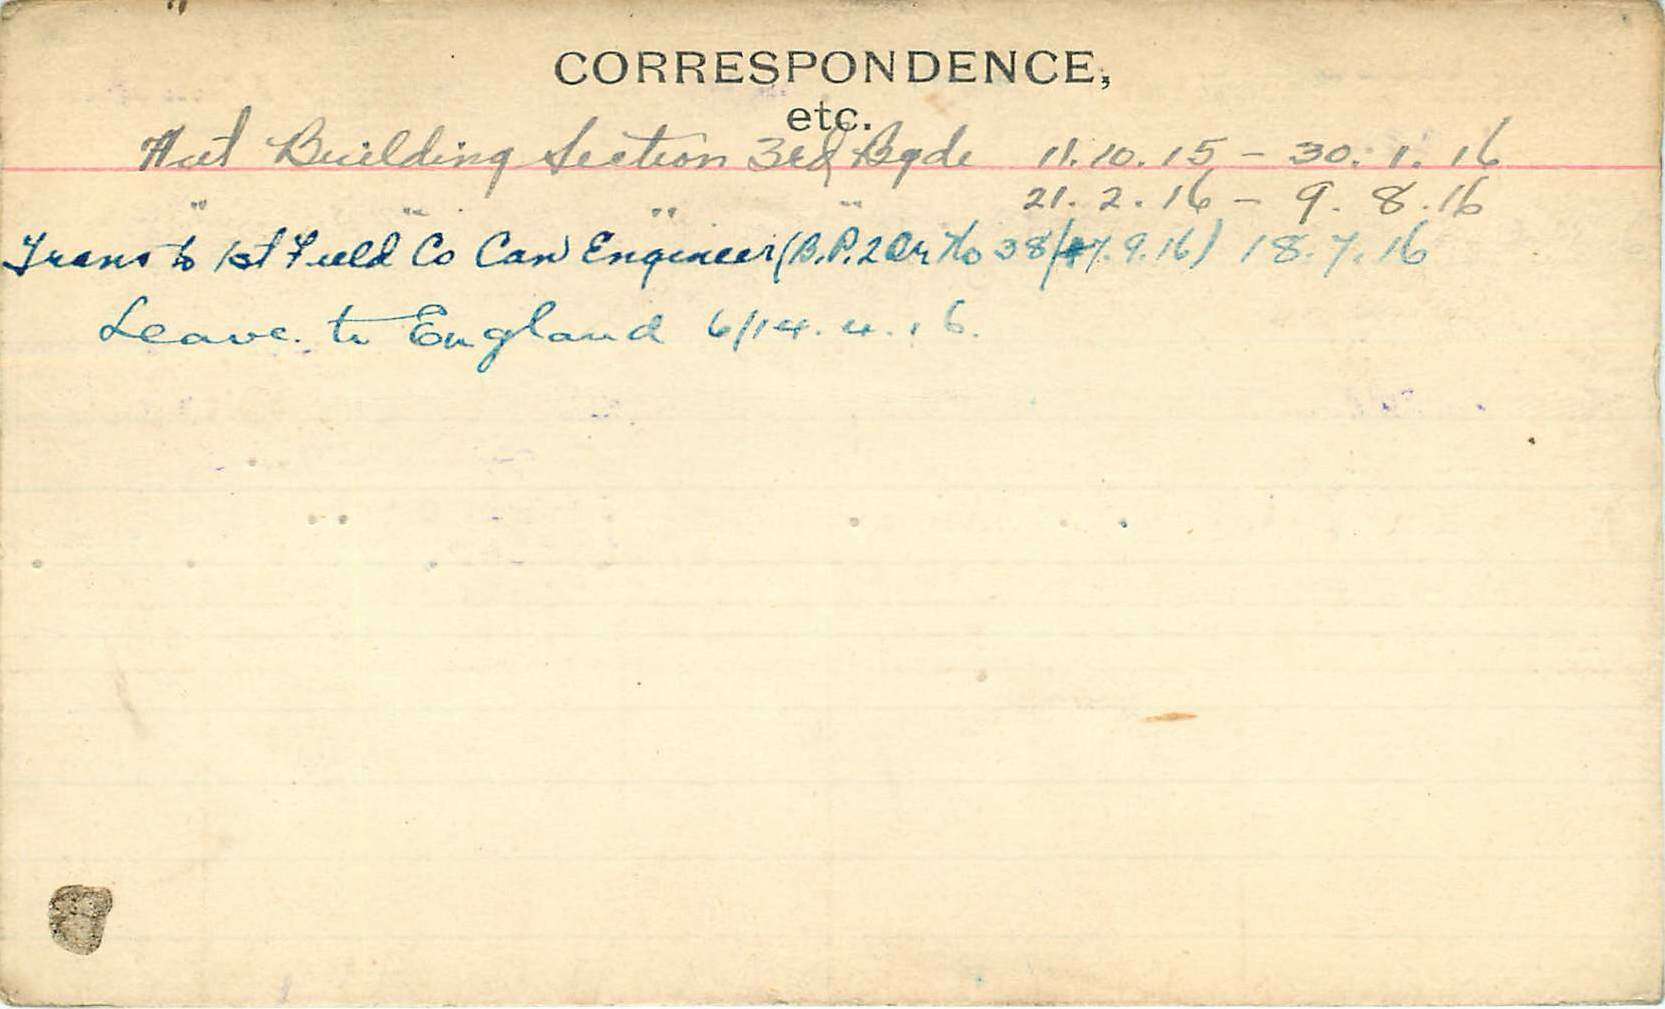 CORRESPONDENCE,
etc.
Hut Building Section 3rd Bgde 11.10.15 - 30.1.16
" " " " 21.2.16 - 9.8.16
Trans to 1st Field Co Can Engineer (B.P.2 Or No 38/ 7.9.16) 18.7.16
Leave. to England 6/14.4.16.